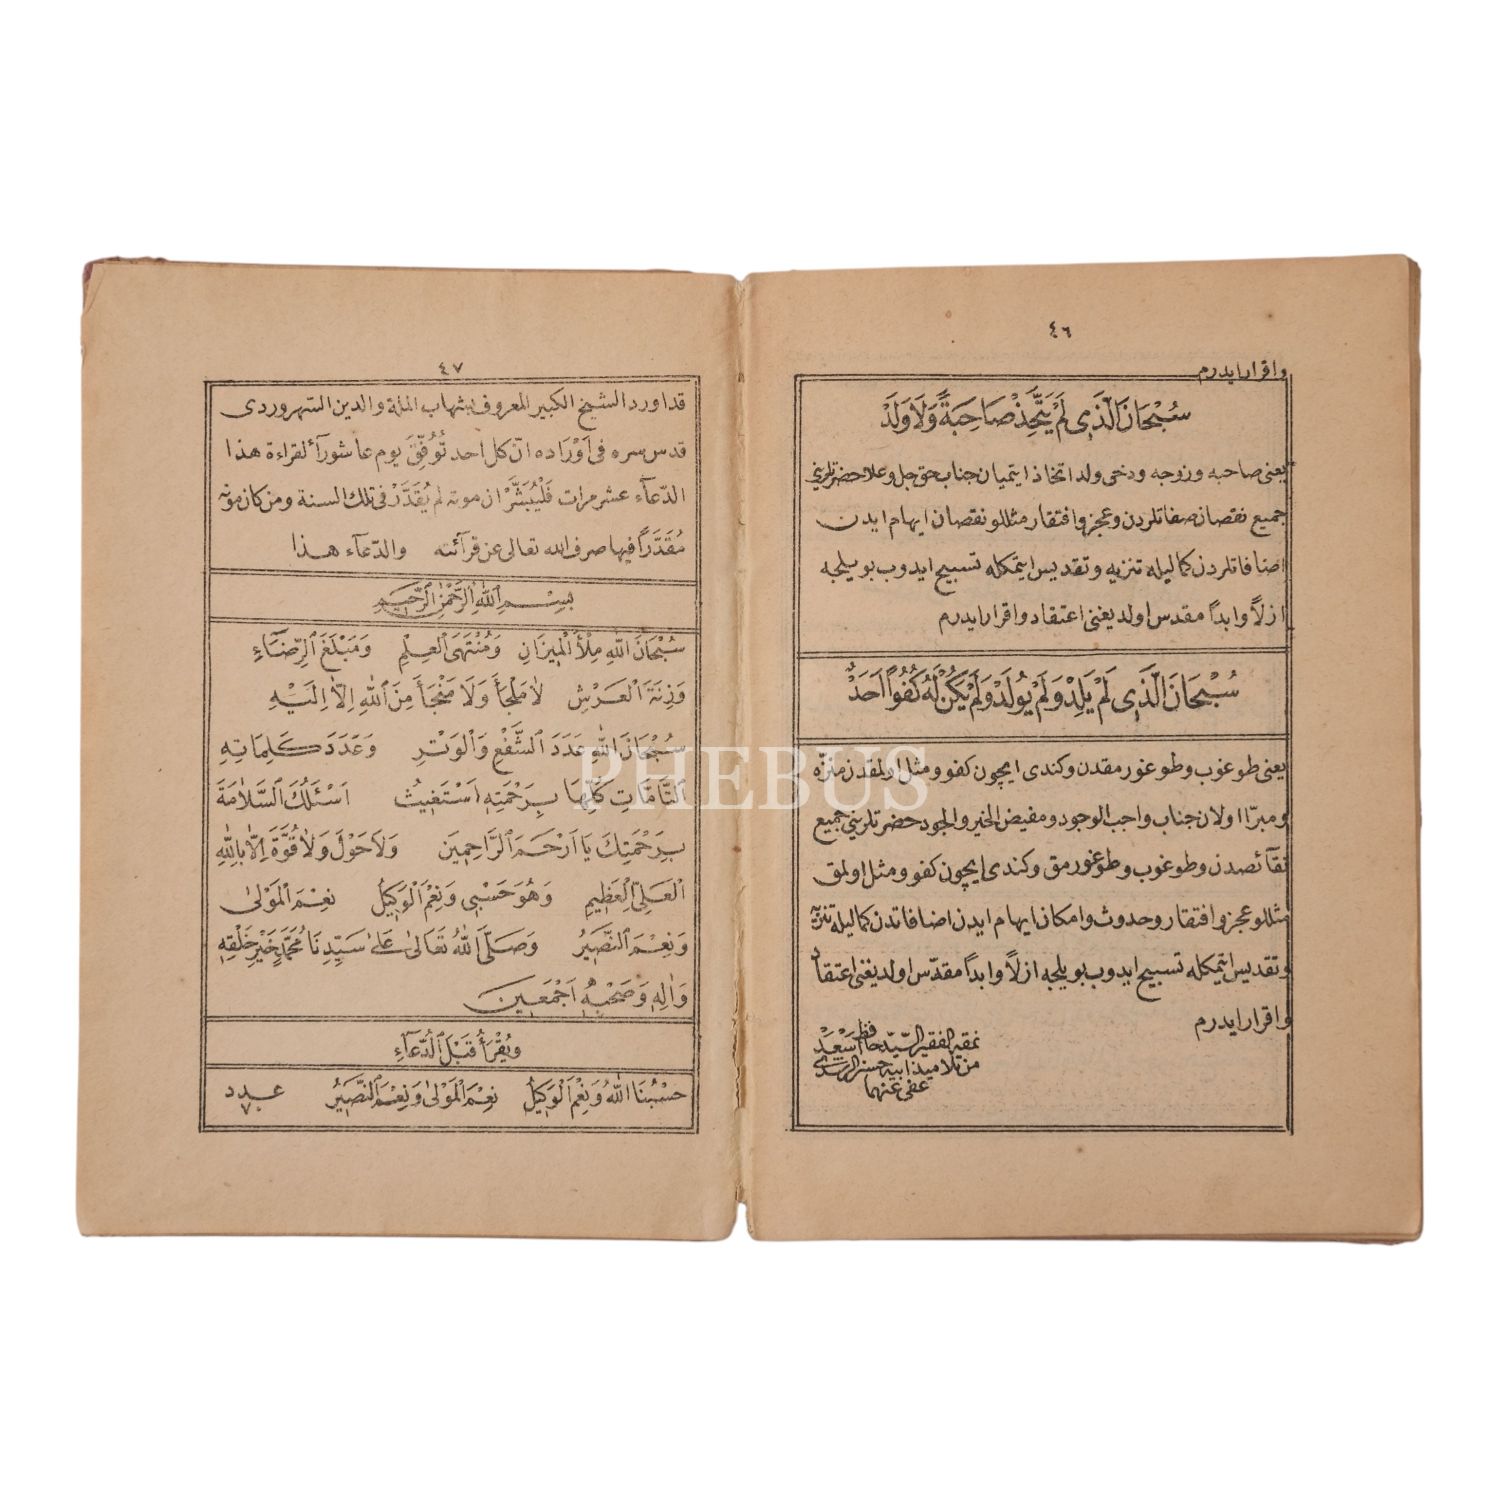 ٤٦
واقرار ايدرم
سُبْحَانَ الَّذِى لَمْ يَتَّخِذْ صَاحِبَةً وَلَا وَلَدْ
يعنى صاحبه و زوجه ودخى ولد اتخاذ ايتميان جناب حق جل وعلا حضرتلرينى
جميع نقصان صفاتلردن وعجز وافتقار مثللو نقصان ايهام ايدن
اضافاتلردن كماليله تنزيه وتقديس ايتمكله تسبيح ايدوب بويلجه
ازلاً وابداً مقدس اولديغنى اعتقاد واقرار ايدرم
سُبْحَانَ الَّذِى لَمْ يَلِدْ وَلَمْ يُولَدْ وَلَمْ يَكُنْ لَهُ كُفُوًا اَحَدٌ
يعنى طوغوب وطوغورمقدن وكندى ايچون كفو ومثل اولمقدن منزّه
ومبرّا اولان جناب واجب الوجود ومفيض الخير والجود حضرتلرينى جميع
نقآئصدن وطوغوب وطوغورمق وكندى ايچون كفو ومثل اولمق
مثللو عجز وافتقار وحدوث وامكان ايهام ايدن اضافاتدن كماليله تنزيه
وتقديس ايتمكله تسبيح ايدوب بويلجه ازلاً وابداً مقدّس اولديغنى اعتقاد
واقرار ايدرم
نمقه الفقير السّيد حافظ اسعد
من تلاميذ ابيه حسن الرشدى
عفى عنهما
٤٧
قد اورد الشيخ الكبير المعروف بشهاب الملة والدين السهروردى
قدس سره فى اَوْرَاده انّ كل احد تُوُفِّقَ يوم عاشورآ لقراءة هذا
الدّعآء عشر مرات فَلْيُبَشَّرْ ان موته لم يُقَدَّرْ فى تلك السنة ومن كان موته
مُقَدَّراً فيها صرف الله تعالى عن قرآئته والدّعآء هذا
بِسْمِ اللهِ الرَّحْمٰنِ الرَّحِيمِ
سُبْحَانَ اللهِ مِلْأَ الْمِيزَانِ وَمُنْتَهَى الْعِلْمِ وَمَبْلَغَ الرِّضَآءِ
وَزِنَةَ الْعَرْشِ لَا مَلْجَأَ وَلَا مَنْجَأَ مِنَ اللهِ اِلَّا اِلَيْهِ
سُبْحَانَ اللهِ عَدَدَ الشَّفْعِ وَالْوَتْرِ وَعَدَدَ كَلِمَاتِهِ
التَّامَّاتِ كُلِّهَا بِرَحْمَتِهِ اَسْتَغِيثُ اَسْئَلُكَ السَّلَامَةَ
بِرَحْمَتِكَ يَا اَرْحَمَ الرَّاحِمِينَ وَلَا حَوْلَ وَلَا قُوَّةَ اِلَّا بِاللهِ
الْعَلِىِّ الْعَظِيمِ وَهُوَ حَسْبِى وَنِعْمَ الْوَكِيلُ نِعْمَ الْمَوْلٰى
وَنِعْمَ النَّصِيرُ وَصَلَّى اللهُ تَعَالٰى عَلٰى سَيِّدِنَا مُحَمَّدٍ خَيْرِ خَلْقِهِ
وَاٰلِهِ وَصَحْبِهِ اَجْمَعِينَ
وَيُقْرَأُ قَبْلَ الدُّعَآءِ
حَسْبُنَا اللهُ وَنِعْمَ الْوَكِيلُ نِعْمَ الْمَوْلٰى وَنِعْمَ النَّصِيرُ عدد ٧
PHEBUS